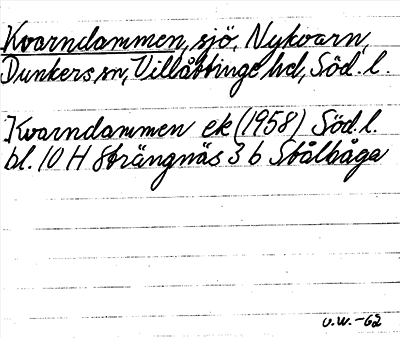 Kvarndammen, sjö, Nykvarn,
Dunkers sn, Villåttinge hd, Söd. l.
Kvarndammen ek (1958) Söd. l.
bl. 10 H Strängnäs 3 b Stålbåga
v.w. -62